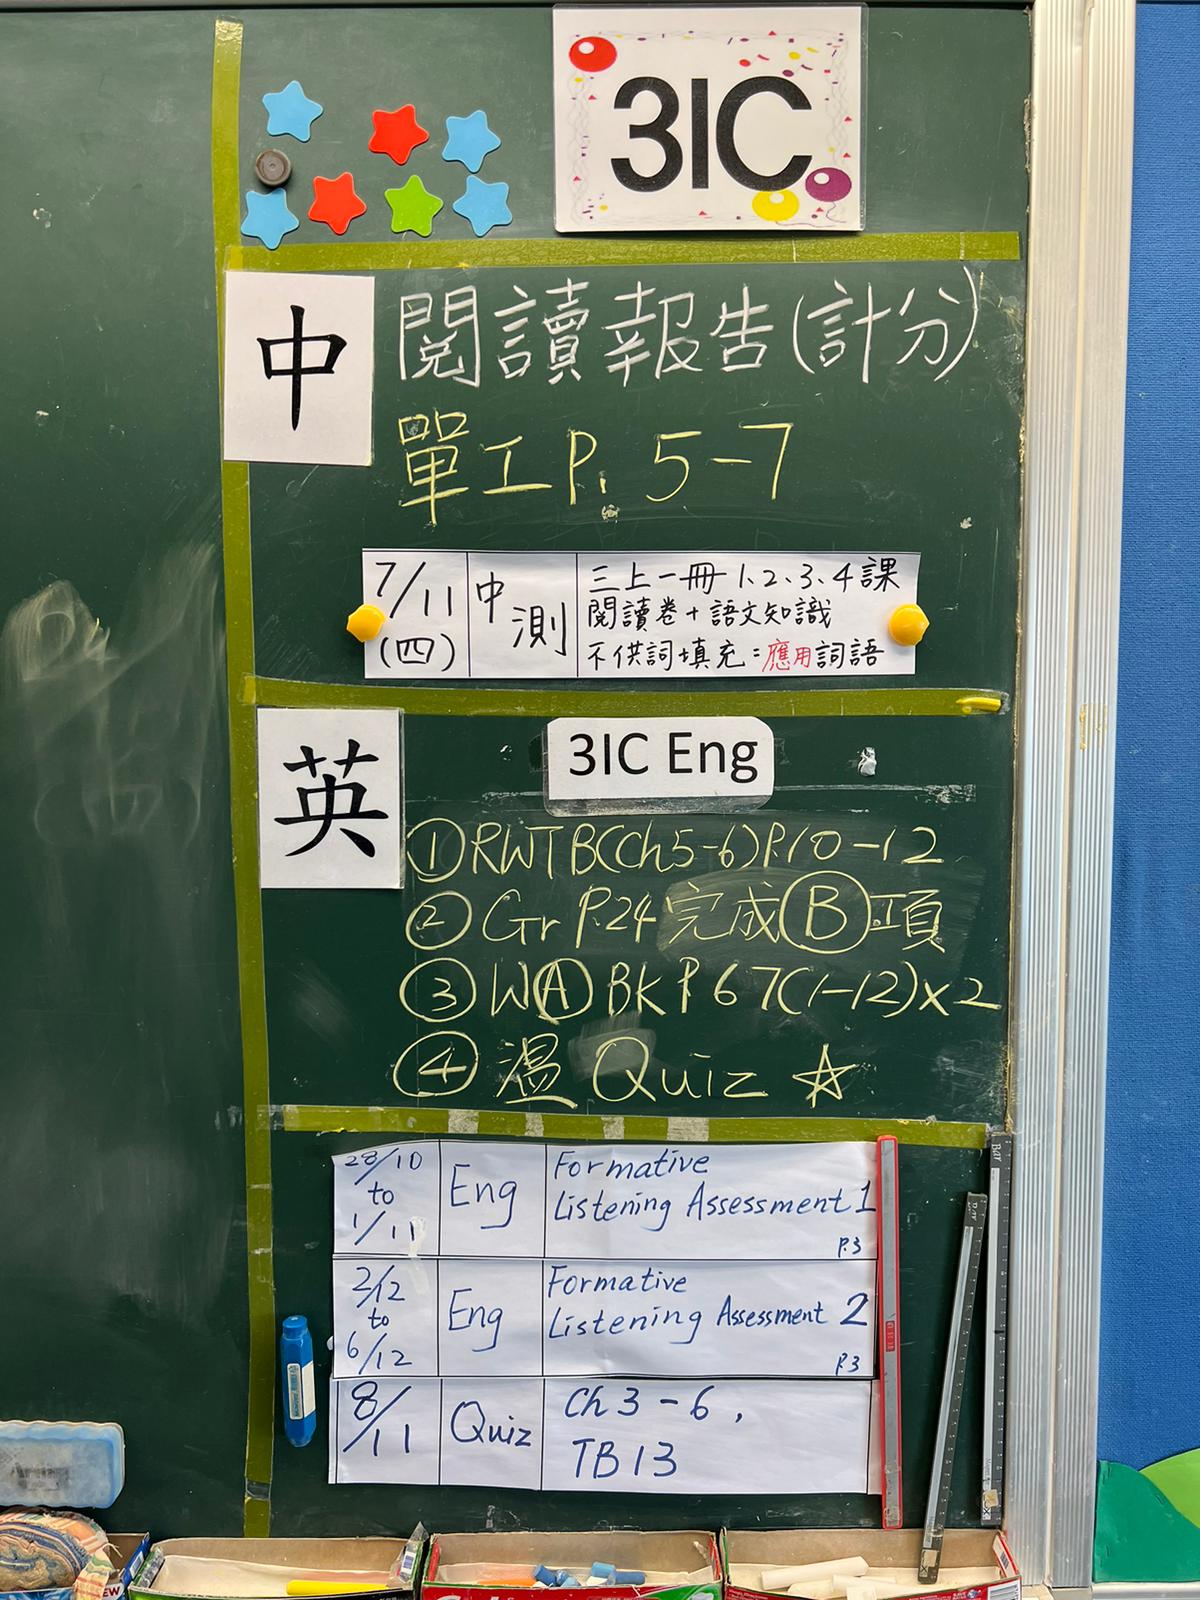 3IC
中
閱讀報告(計分)
單工P. 5-7
7/11
(四)
中測
三上一冊 1、2、3、4課
閱讀卷+語文知識
不供詞填充：應用詞語
英
3IC Eng
①RWTB(Ch5-6)P.10-12
②Gr P.24完成Ⓑ項
③WⒶBK P67(1-12)x2
④溫 Quiz ☆
28/10
to
1/11
Eng
Formative
Listening Assessment 1
P.3
2/12
to
6/12
Eng
Formative
Listening Assessment 2
P.3
8/11
Quiz
Ch 3-6,
TB 13